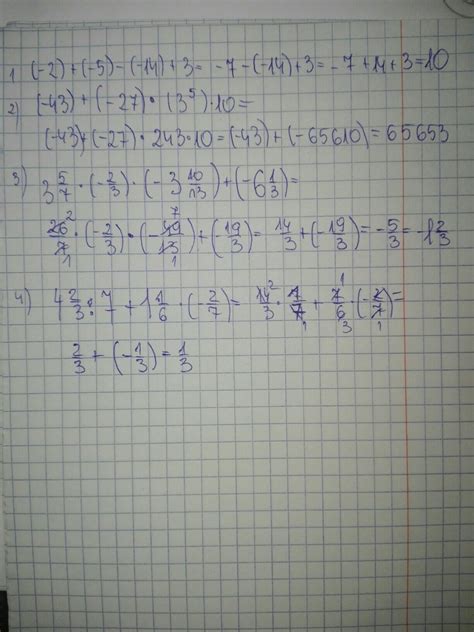 1 (-2)+(-5)-(-14)+3= -7-(-14)+3=-7+14+3=10
2) (-43)+(-27)·(3⁵)·10=
(-43)+(-27)·243·10=(-43)+(-65610)=65653
3) 3 5/7·(-2/3)·(-3 10/13)+(-6 1/3)=
26²/7₁·(-2/3)·(-49⁷/13₁)+(-19/3)=14/3+(-19/3)=-5/3=-1 2/3
4) 4 2/3:7+1 1/6·(-2/7)=14²/3·1/7₁+7¹/6₃·(-2/7₁)=
2/3+(-1/3)=1/3